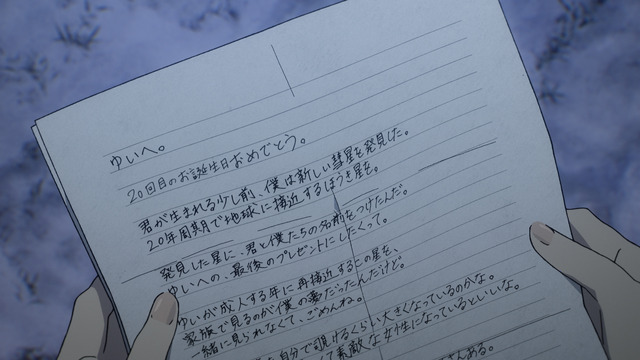 ゆいへ。
20回目のお誕生日おめでとう。
君が生まれる少し前、僕は新しい彗星を発見した。
20年周期で地球に接近するほうき星を。
発見した星に、君と僕たちの名前をつけたんだ。
ゆいへの、最後のプレゼントにしたくって。
ゆいが成人する年に再接近するこの星を、
家族で見るのが僕の夢だったんだけど。
一緒に見られなくて、ごめんね。
自分で覗けるくらい大きくなっているのかな。
素敵な女性になっているといいな。
ある。